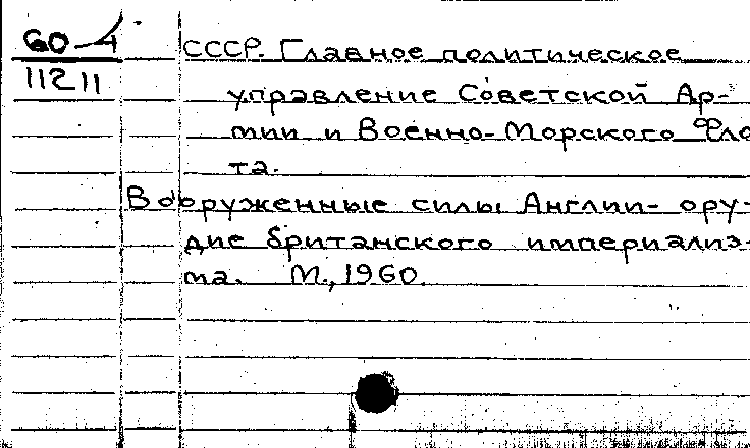 60-4
11211
СССР. Главное политическое
управление Советской Ар-
мии и Военно-Морского Фло
та.
Вооруженные силы Англии- ору-
дие британского империализ-
ма. М., 1960.